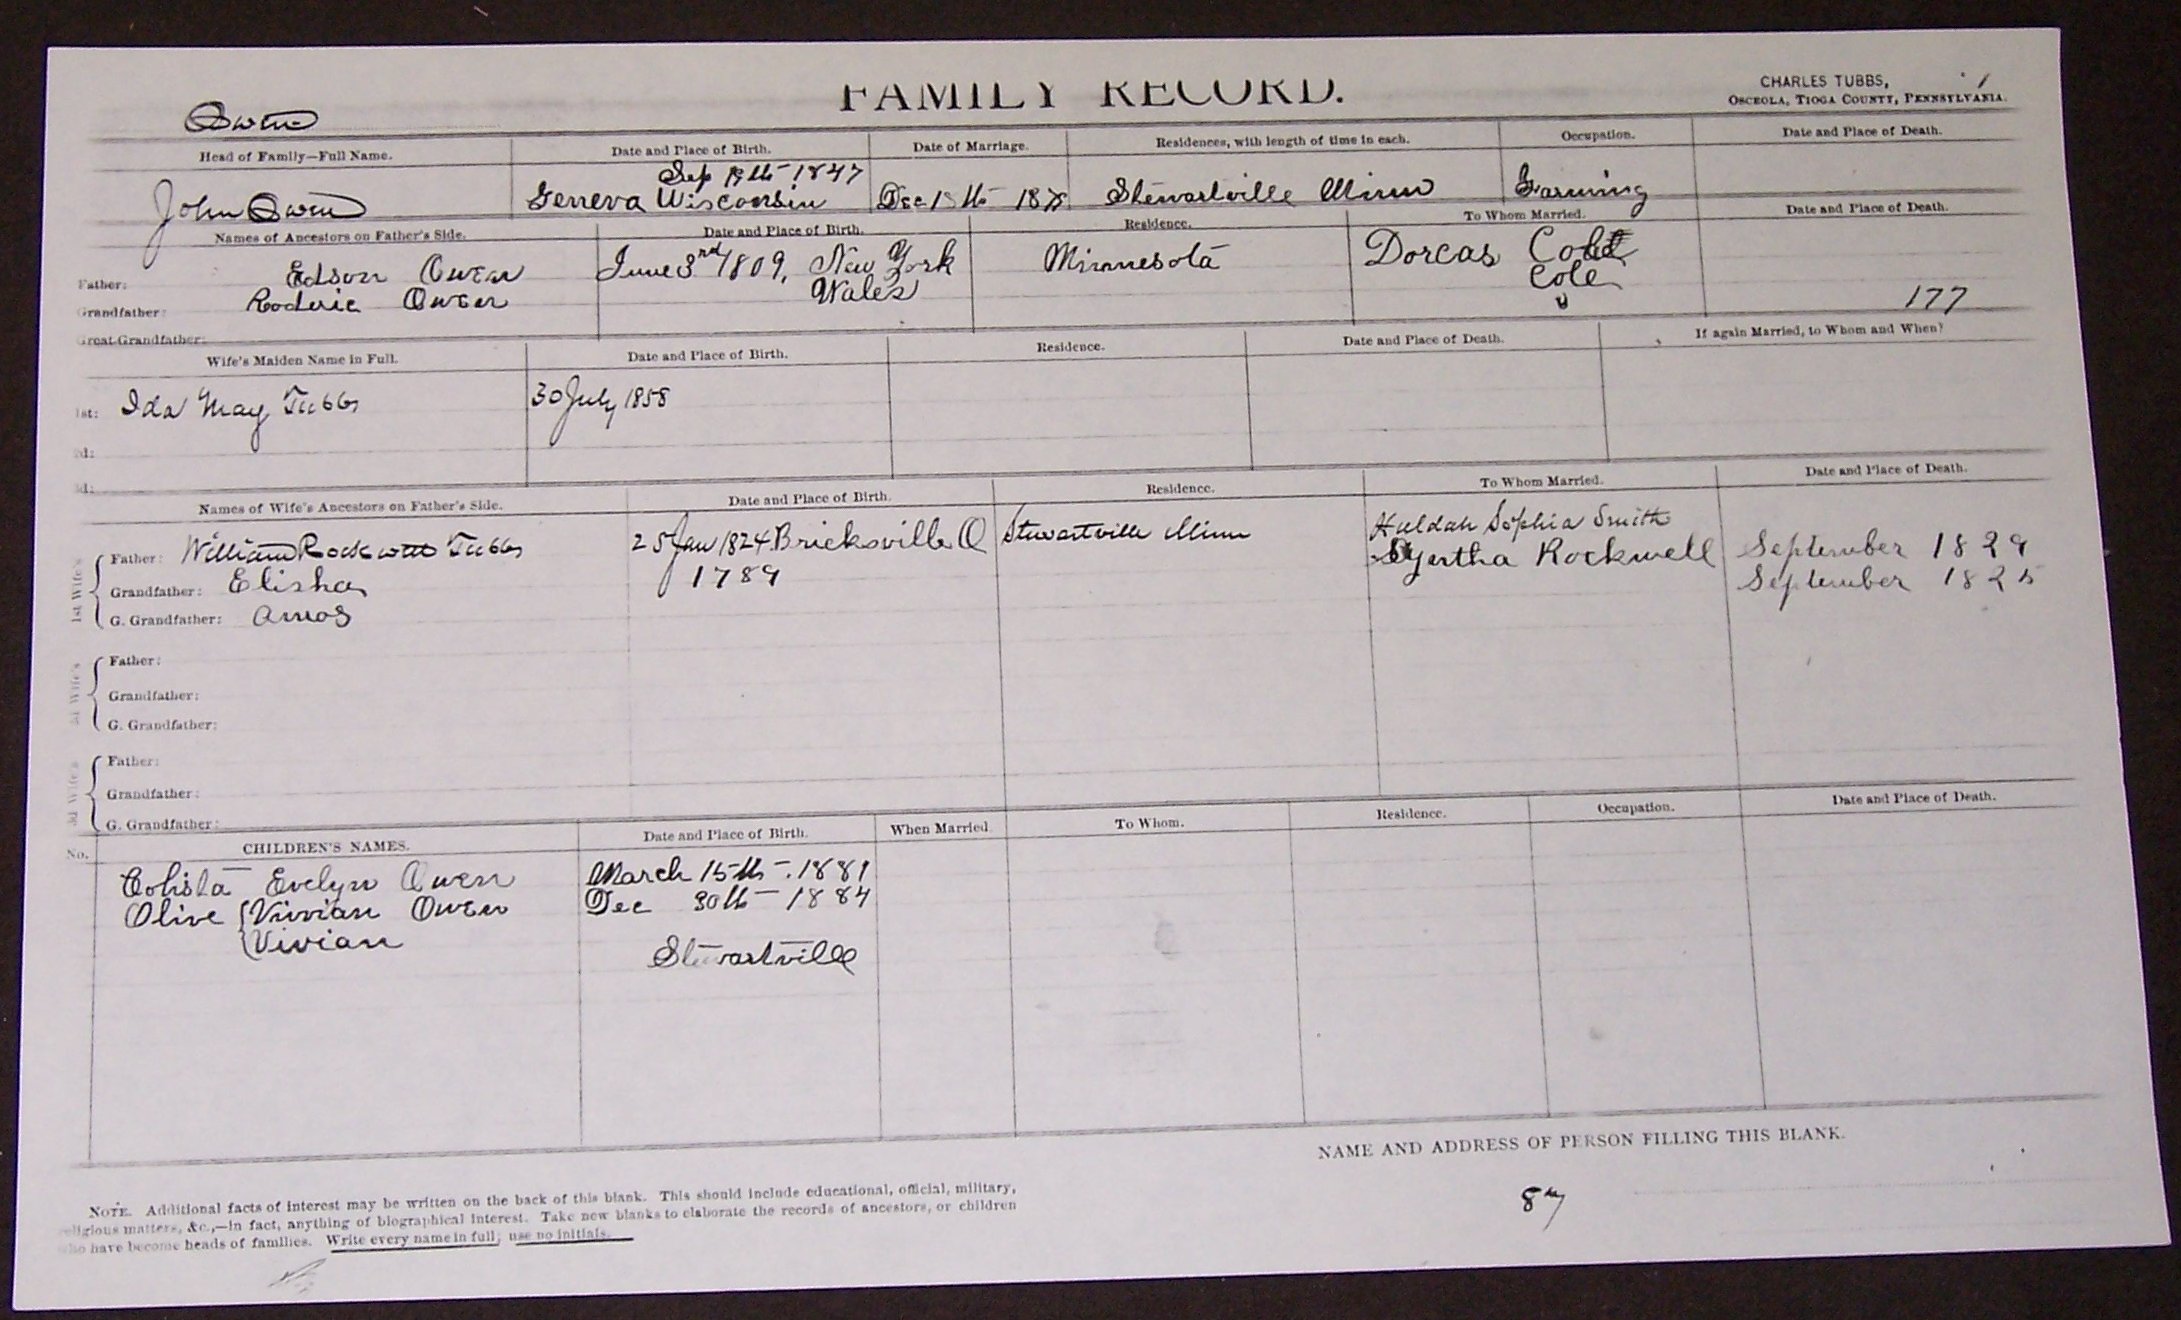 FAMILY RECORD.
CHARLES TUBBS,
OSCEOLA, TIOGA COUNTY, PENNSYLVANIA.
Owen
Head of Family—Full Name. Date and Place of Birth. Date of Marriage. Residences, with length of time in each. Occupation. Date and Place of Death.
Sep 19th 1847
John Owen Geneva Wisconsin Dec 15th 1878 Stewartville Minn Farming
Names of Ancestors on Father's Side. Date and Place of Birth. Residence. To Whom Married. Date and Place of Death.
Father: Edson Owen June 3rd 1809, New York Minnesota Dorcas
Grandfather: Roderic Owen Wales Cole
177
Great-Grandfather:
Wife's Maiden Name in Full. Date and Place of Birth. Residence. Date and Place of Death. If again Married, to Whom and When?
1st: Ida May Tubbs 30 July 1858
2d:
3d:
Names of Wife's Ancestors on Father's Side. Date and Place of Birth. Residence. To Whom Married. Date and Place of Death.
1st Wife's
Father: William Rockwell Tubbs 25 Jan 1824 Bricksville O Stewartville Minn Huldah Sophia Smith
Grandfather: Elisha 1789 Rockwell September 1829
G. Grandfather: Amos September 1825
2d Wife's
Father:
Grandfather:
G. Grandfather:
3d Wife's
Father:
Grandfather:
G. Grandfather:
No. CHILDREN'S NAMES. Date and Place of Birth. When Married To Whom. Residence. Occupation. Date and Place of Death.
Colista Evelyn Owen March 15th - 1881
Olive Vivian Owen Dec 30th - 1884
Vivian Stewartville
NAME AND ADDRESS OF PERSON FILLING THIS BLANK.
NOTE. Additional facts of interest may be written on the back of this blank. This should include educational, official, military,
religious matters, &c.,—in fact, anything of biographical interest. Take new blanks to elaborate the records of ancestors, or children
who have become heads of families. Write every name in full; use no initials.